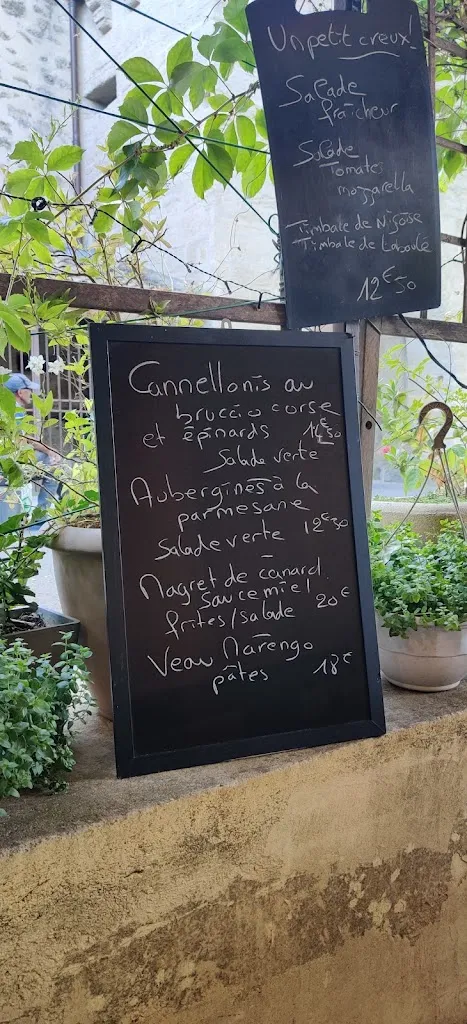 Un petit creux!
Salade
fraîcheur
Salade
Tomates
mozzarella
Timbale de Niçoise
Timbale de Taboulé
12€50
Cannellonis au
bruccio corse
et épinards 14€50
Salade verte
Aubergines à la
parmesane
Salade verte 12€50
Magret de canard
Sauce miel
frites/salade 20€
Veau Marengo
pâtes 18€